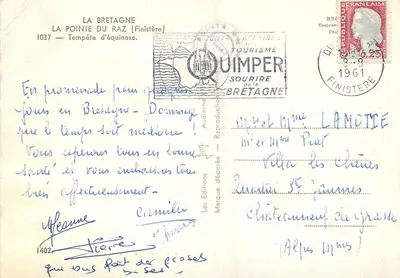 LA BRETAGNE
LA POINTE DU RAZ (Finistère)
1037 — Tempête d'équinoxe.
TOURISME
QUIMPER
SOURIRE
de la
BRETAGNE
1961
FINISTERE
0,25
En promenade pour quelques
jours en Bretagne. Dommage
que le temps soit médiocre !
Nous espérons tous en bonne
santé et vous embrassons tous
bien affectueusement.
Jeanne
Camille
Pierre
1402
qui vous fait des grosses
bises.
Les Editions d'Art
Marque déposée - Reproduction
Mr et Mme LAMOTTE
Mr et Mme Prat
Villa les Chênes
Quartier St Jeaumes
Châteauneuf de Grasse
(Alpes Mmes)